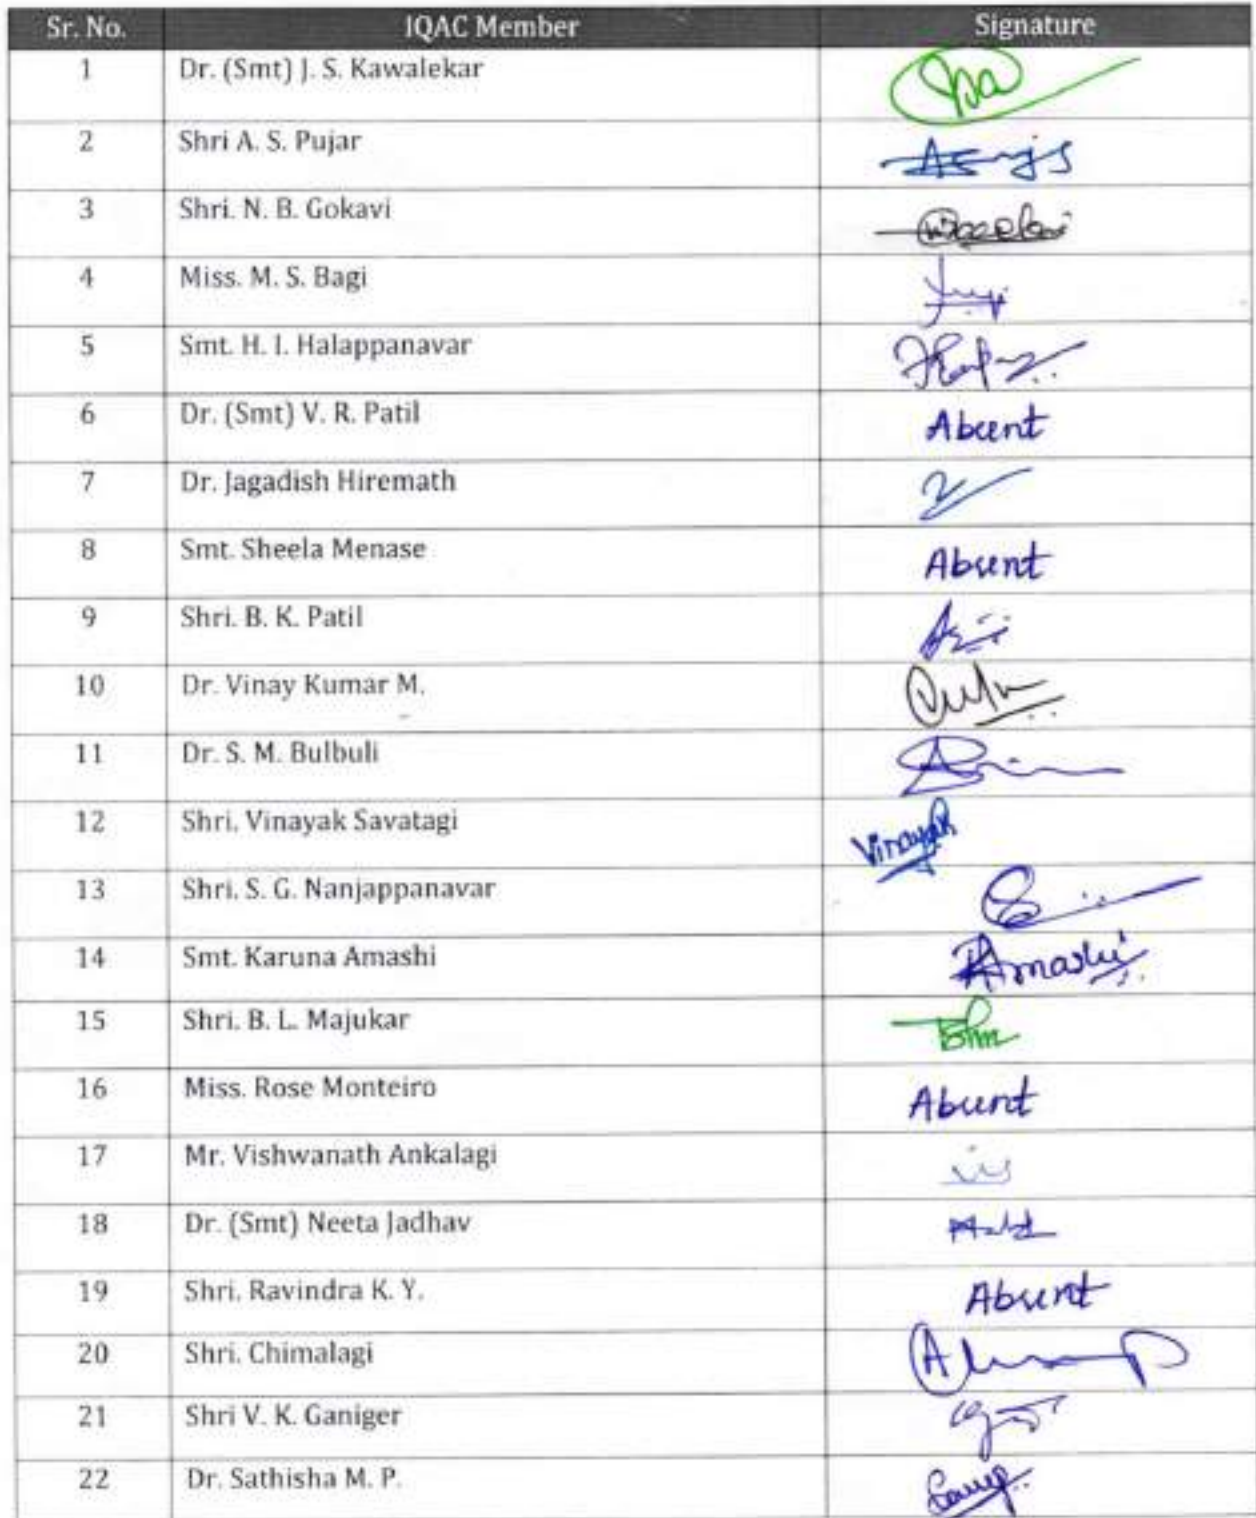 Sr. No. IQAC Member Signature
1 Dr. (Smt) J. S. Kawalekar
2 Shri A. S. Pujar
3 Shri. N. B. Gokavi
4 Miss. M. S. Bagi
5 Smt. H. I. Halappanavar
6 Dr. (Smt) V. R. Patil Absent
7 Dr. Jagadish Hiremath
8 Smt. Sheela Menase Absent
9 Shri. B. K. Patil
10 Dr. Vinay Kumar M.
11 Dr. S. M. Bulbuli
12 Shri. Vinayak Savatagi Vinayak
13 Shri. S. G. Nanjappanavar
14 Smt. Karuna Amashi KAmashi
15 Shri. B. L. Majukar
16 Miss. Rose Monteiro Absent
17 Mr. Vishwanath Ankalagi
18 Dr. (Smt) Neeta Jadhav
19 Shri. Ravindra K. Y. Absent
20 Shri. Chimalagi
21 Shri V. K. Ganiger
22 Dr. Sathisha M. P.